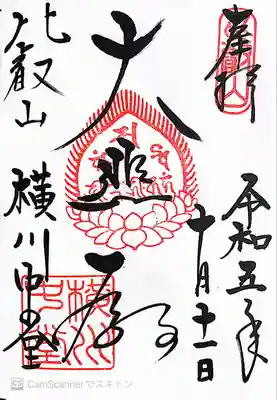 奉拝
令和五年
十月十一日
大悲殿
比叡山
横川中堂
横川中堂
CS CamScannerでスキャン